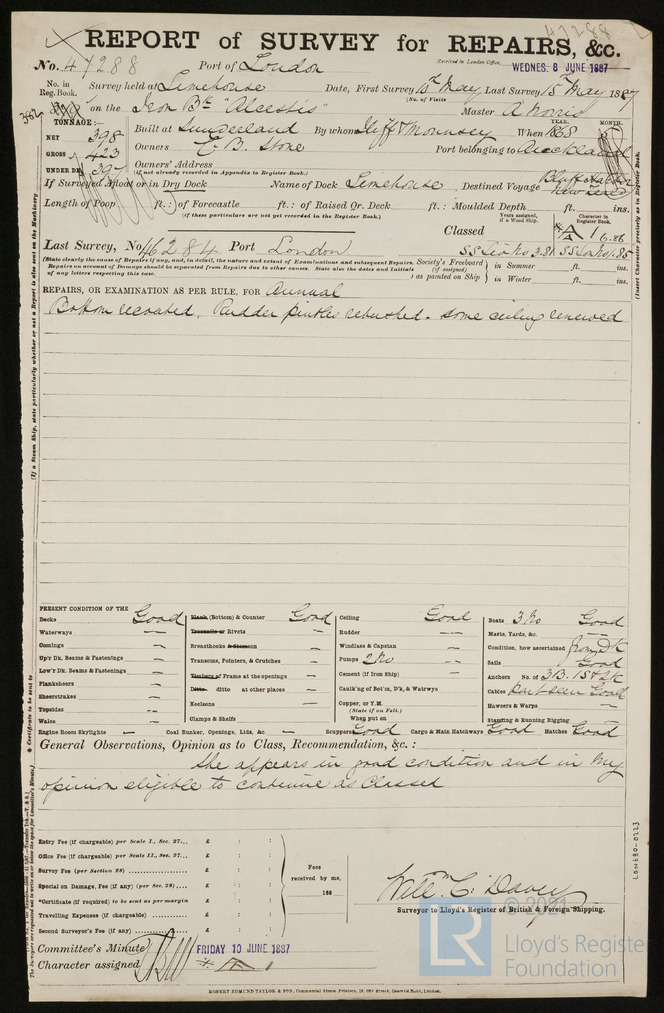 47288
REPORT of SURVEY for REPAIRS, &c.
No. 47288 Port of London Received in London Office, WEDNES. 8 JUNE 1887
No. in Reg. Book. Survey held at Limehouse Date, First Survey 15th May Last Survey 15th May 1887
(No. of Visits
362 on the Iron Bk "Alcestis" Master A Norris
TONNAGE:-
NET 398
GROSS 423
UNDER DK 397
Built at Sunderland By whom Iliff & Mounsey When 1868
YEAR. MONTH.
Owners C. B. Stone Port belonging to Auckland
Owners' Address
(if not already recorded in Appendix to Register Book.)
If Surveyed Afloat or in Dry Dock Name of Dock Limehouse Destined Voyage Bluff Harbor New Zeal
Length of Poop ft.: of Forecastle ft.: of Raised Qr. Deck ft.: Moulded Depth ft. ins.
(if these particulars are not yet recorded in the Register Book.)
Years assigned, if a Wood Ship. Character in Register Book.
Classed A 1 6.86
Last Survey, No. 46284 Port London
S.S. Lon No 3.81 S.S. Lon No 1.85
(State clearly the cause of Repairs if any, and, in detail, the nature and extent of Examinations and subsequent Repairs.
Repairs on account of Damage should be separated from Repairs due to other causes. State also the dates and Initials
of any letters respecting this case.
Society's Freeboard (if assigned) as painted on Ship in Summer ft. ins.
in Winter ft. ins.
REPAIRS, OR EXAMINATION AS PER RULE, FOR Annual
Bottom recoated. Rudder pintles rebushed. Some ceiling renewed
(If a Steam Ship, state particularly whether or not a Report is also sent on the Machinery
(Insert Character precisely as in Register Book.)
PRESENT CONDITION OF THE
Decks Good
Waterways —
Comings —
Up'r Dk. Beams & Fastenings —
Low'r Dk. Beams & Fastenings —
Planksheers —
Sheerstrakes —
Topsides —
Wales —
Engine Room Skylights —
Plank (Bottom) & Counter Good
Treenails or Rivets —
Breasthooks & Stemson —
Transoms, Pointers, & Crutches —
Timbers of Frame at the openings —
Ditto. ditto at other places —
Keelsons —
Clamps & Shelfs —
Coal Bunker, Openings, Lids, &c. —
Ceiling Good
Rudder —
Windlass & Capstan —
Pumps 2 No —
Cement (if from Ship) —
Caulk'g of Bot'm, D'k, & Watrwys —
Copper, or Y.M.
(State if on Felt.)
When put on
Scuppers Good
Boats 3 No Good
Masts, Yards, &c. —
Condition, how ascertained from Dk
Sails Good
Anchors No. of 3B. 1S & 2K
Cables part seen Good
Hawsers & Warps —
Standing & Running Rigging —
Cargo & Main Hatchways Good Hatches Good
General Observations, Opinion as to Class, Recommendation, &c.:
She appears in good condition and in my
opinion eligible to continue as Classed
Entry Fee (if chargeable) per Scale I., Sec. 27... £ : :
Office Fee (if chargeable) per Scale II., Sec. 27... £ : :
Survey Fee (per Section 28) £ : :
Special on Damage, Fee (if any) (per Sec. 28) £ : :
*Certificate (if required) to be sent as per margin £ : :
Travelling Expenses (if chargeable) £ : :
Second Surveyor's Fee (if any) £ : :
Fees received by me, 188
Willm C. Davey
Surveyor to Lloyd's Register of British & Foreign Shipping.
Committee's Minute FRIDAY 10 JUNE 1887
Character assigned A 1
LON680-0223
ROBERT EDMUND TAYLOR & SON, Commercial Steam Printers, 19, Old Street, Goswell Road, London.
© 2021
LR
Lloyd's Register
Foundation